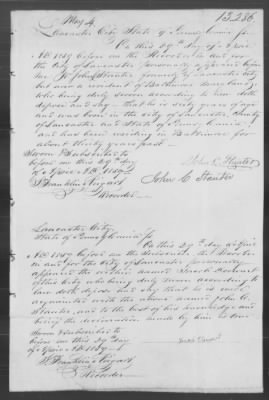 May 4.
13,286
Lancaster City, State of Pennsylvania ss
On this 29th day of April
AD 1859 before me the Recorder in and for
the City of Lancaster personally appeared
John C. formerly of Lancaster City
but now a resident of Baltimore Maryland
who being duly sworn according to law doth
depose & say that he is sixty years of age
and was born in the city of Lancaster, County
of Lancaster and State of Pennsylvania
and has been residing in Baltimore for
about thirty years past
Sworn & subscribed to
before me this 29th day
of April AD 1859
Recorder
John C.
Lancaster City,
State of Pennsylvania ss
On this 29th day of April
AD 1859 before me the Recorder
in and for the City of Lancaster personally
appeared the within named
of this City who being duly sworn according to
law doth depose and say that he is well
acquainted with the above named John C.
and to the best of his knowledge and
belief the declaration made by him is true
Sworn & subscribed to
before me this 29th day
of April AD 1859
Recorder